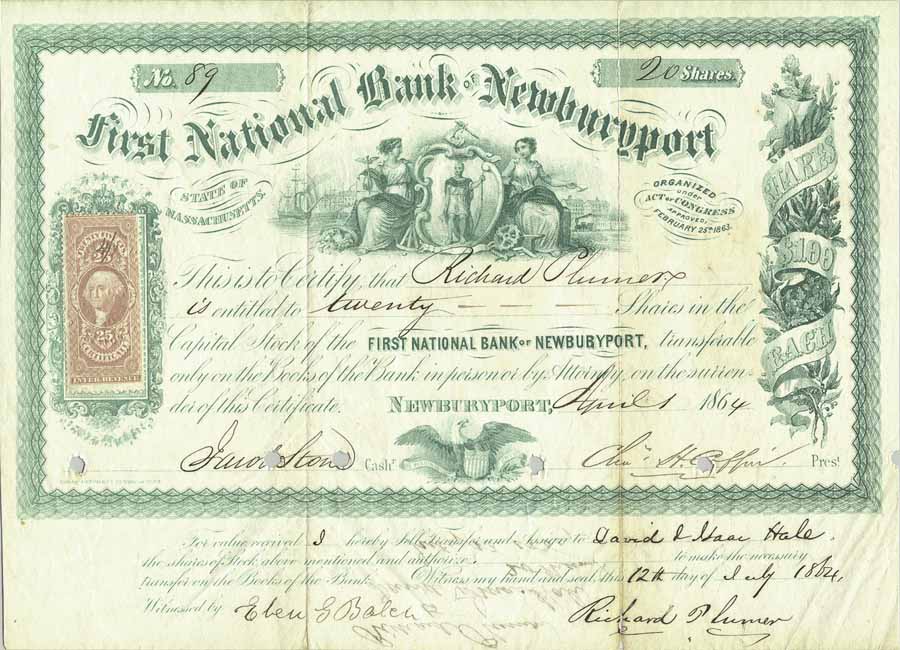 No. 89
20 Shares.
First National Bank OF Newburyport
STATE OF MASSACHUSETTS.
ORGANIZED under ACT OF CONGRESS APPROVED, FEBRUARY 25TH 1863.
SHARES $100 EACH
25 CERTIFICATE
INTER. REVENUE
This is to Certify, that Richard Plumer
is entitled to twenty Shares in the
Capital Stock of the FIRST NATIONAL BANK OF NEWBURYPORT, transferable
only on the Books of the Bank in person or by Attorney, on the surren-
der of this Certificate. NEWBURYPORT, April 1 1864
Jacob Stone Cashr. Chas. H. Coffin. Prest.
For value received I hereby Sell, transfer and Assign to David & Isaac Hale.
the shares of Stock above mentioned and authorize to make the necessary
transfer on the Books of the Bank. Witness my hand and seal, this 12th day of July 1864,
Witnessed by Eben G Balch Richard Plumer